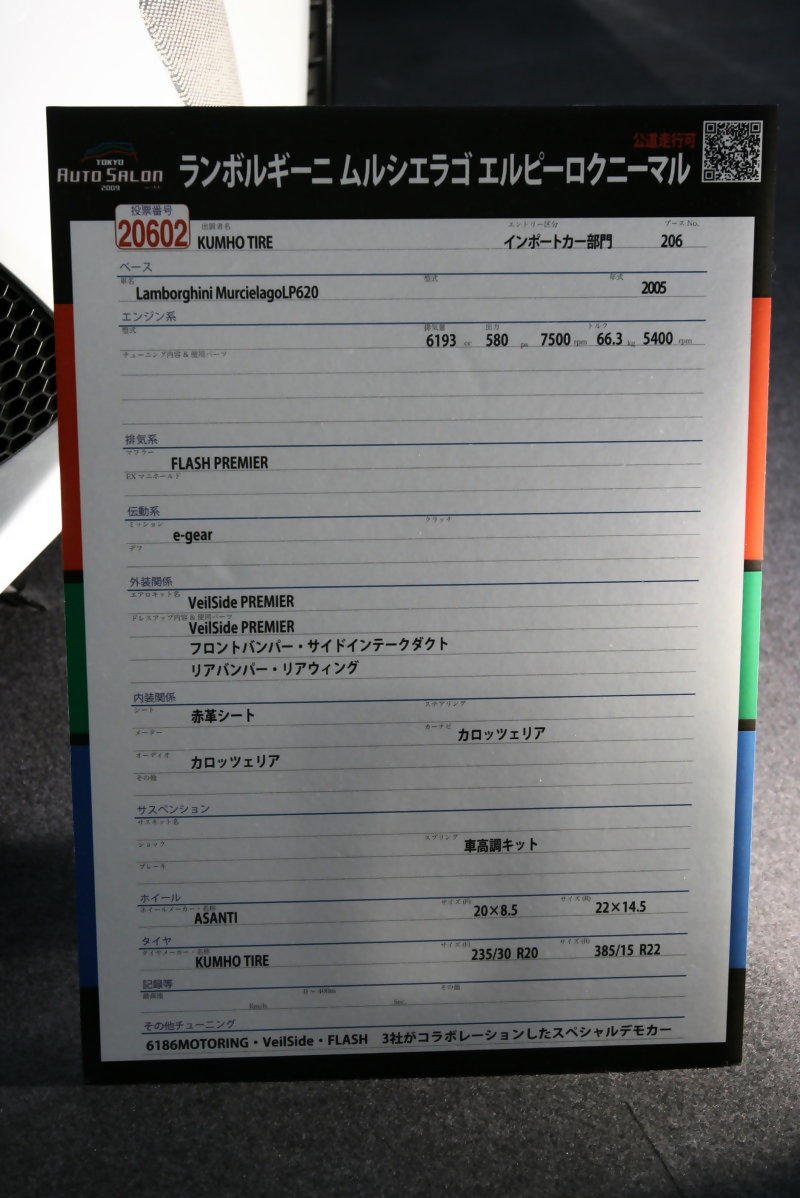 公道走行可
TOKYO
AUTO SALON
2009
ランボルギーニ ムルシエラゴ エルピーロクニーマル
投票番号
20602
出展者名
KUMHO TIRE
エントリー区分
インポートカー部門
ブースNo.
206
ベース
車名
Lamborghini MurcielagoLP620
型式
年式
2005
エンジン系
型式
排気量
6193 cc
出力
580 ps 7500 rpm
トルク
66.3 kg 5400 rpm
チューニング内容&使用パーツ
排気系
マフラー
FLASH PREMIER
EXマニホールド
伝動系
ミッション
e-gear
クラッチ
デフ
外装関係
エアロキット名
VeilSide PREMIER
ドレスアップ内容&使用パーツ
VeilSide PREMIER
フロントバンパー・サイドインテークダクト
リアバンパー・リアウィング
内装関係
シート
赤革シート
ステアリング
メーター
カーナビ
カロッツェリア
オーディオ
カロッツェリア
その他
サスペンション
サスキット名
ショック
スプリング
車高調キット
ブレーキ
ホイール
ホイールメーカー・名称
ASANTI
サイズ(F)
20×8.5
サイズ(R)
22×14.5
タイヤ
タイヤメーカー・名称
KUMHO TIRE
サイズ(F)
235/30 R20
サイズ(R)
385/15 R22
記録等
最高速
Km/h
0～400m
Sec.
その他
その他チューニング
6186MOTORING・VeilSide・FLASH 3社がコラボレーションしたスペシャルデモカー